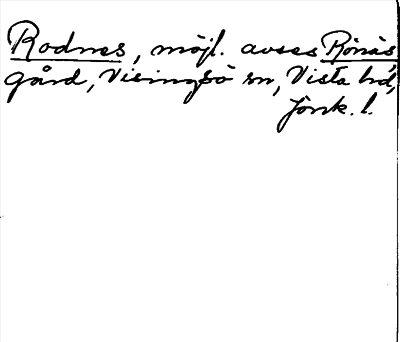 Rodnes, möjl. avses Rönäs
gård, Visingsö sn, Vista hd,
Jönk. l.